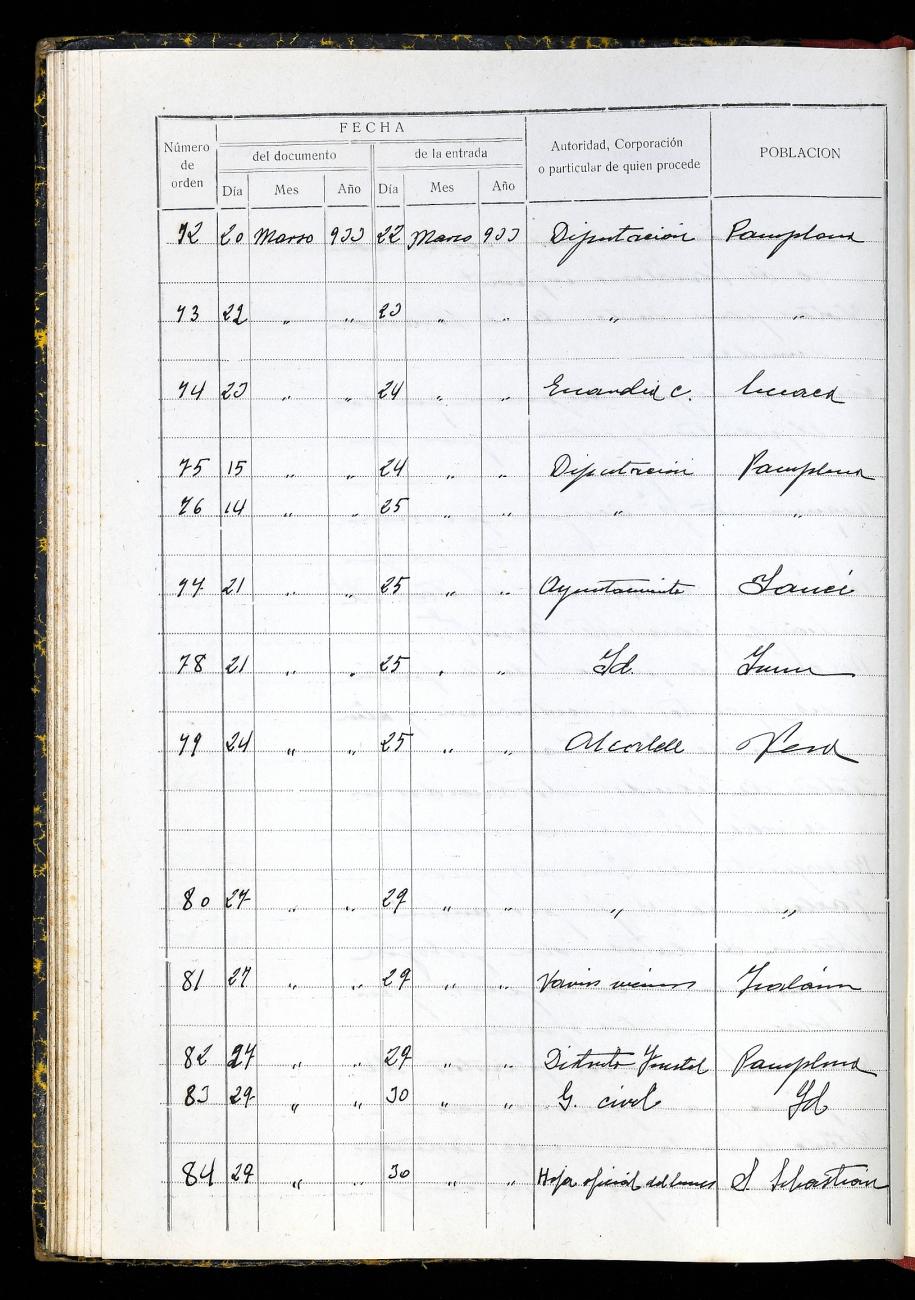 FECHA
Número de orden
del documento
de la entrada
Autoridad, Corporación o particular de quien procede
POBLACION
Día Mes Año Día Mes Año
72 20 Marzo 933 22 Marzo 933 Diputación Pamplona
73 22 " " 23 " " " "
74 23 " " 24 " " C.
75 15 " " 24 " " Diputación Pamplona
76 14 " " 25 " " " "
77 21 " " 25 " " Ayuntamiento Yanci
78 21 " " 25 " " Id. Irun
79 24 " " 25 " " Alcalde Vera
80 27 " " 29 " " " "
81 27 " " 29 " " Varios vecinos
82 27 " " 29 " " Distrito Forestal Pamplona
83 29 " " 30 " " G. civil Id
84 29 " " 30 " " Hoja oficial del lunes S Sebastian